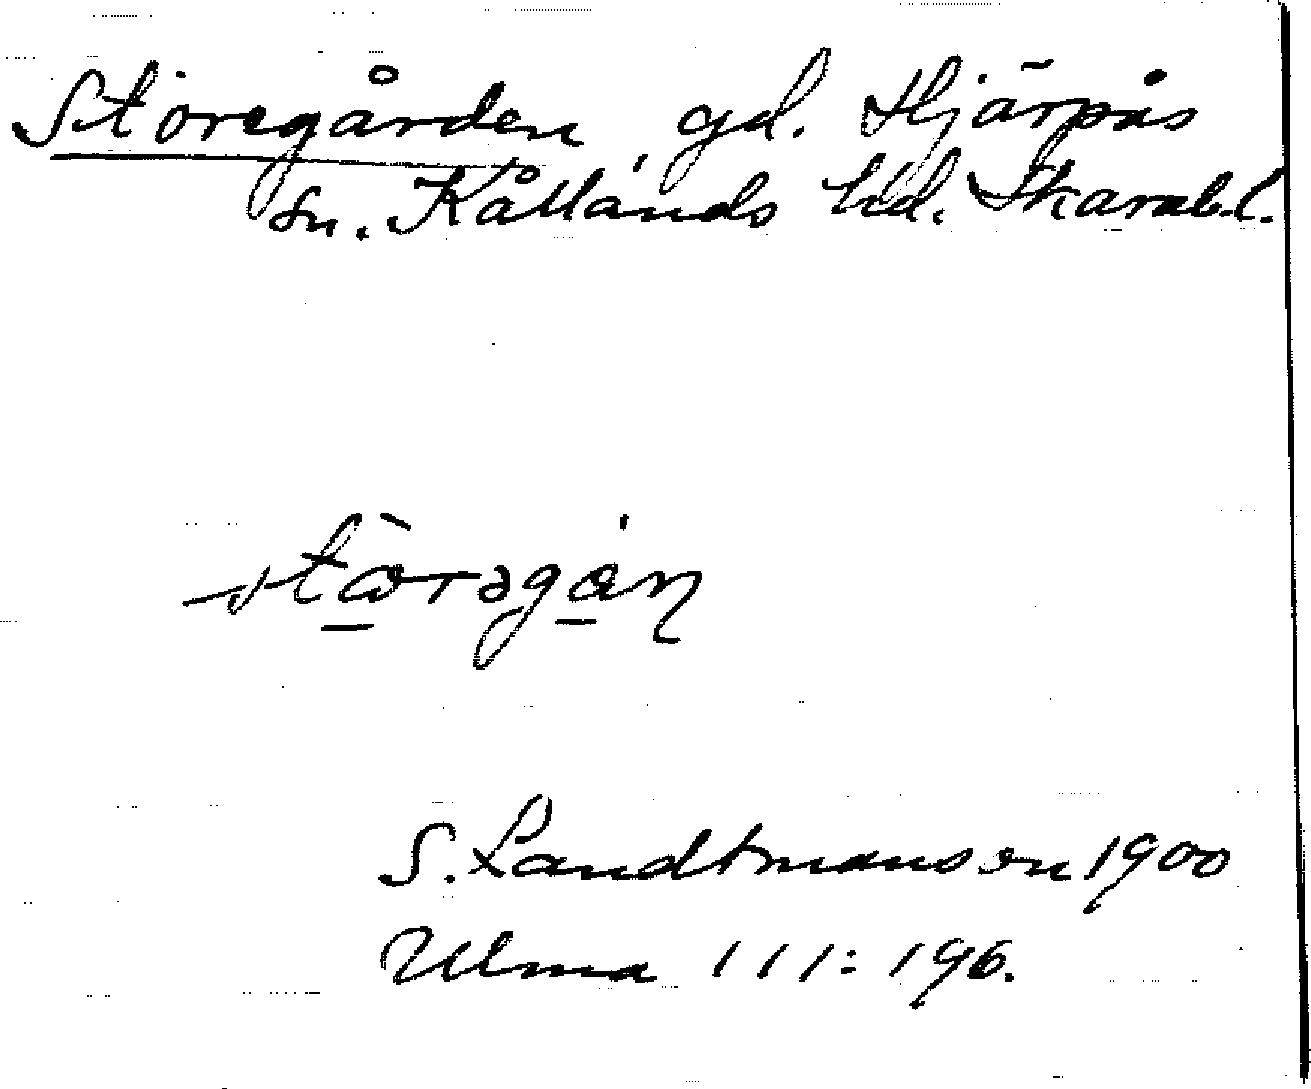 Storegården gd. Hjärpås
sn. Kållands hd. Skarab.l.
stɷ̀rəgán
S. Landtmanson 1900
Ulma 111:196.